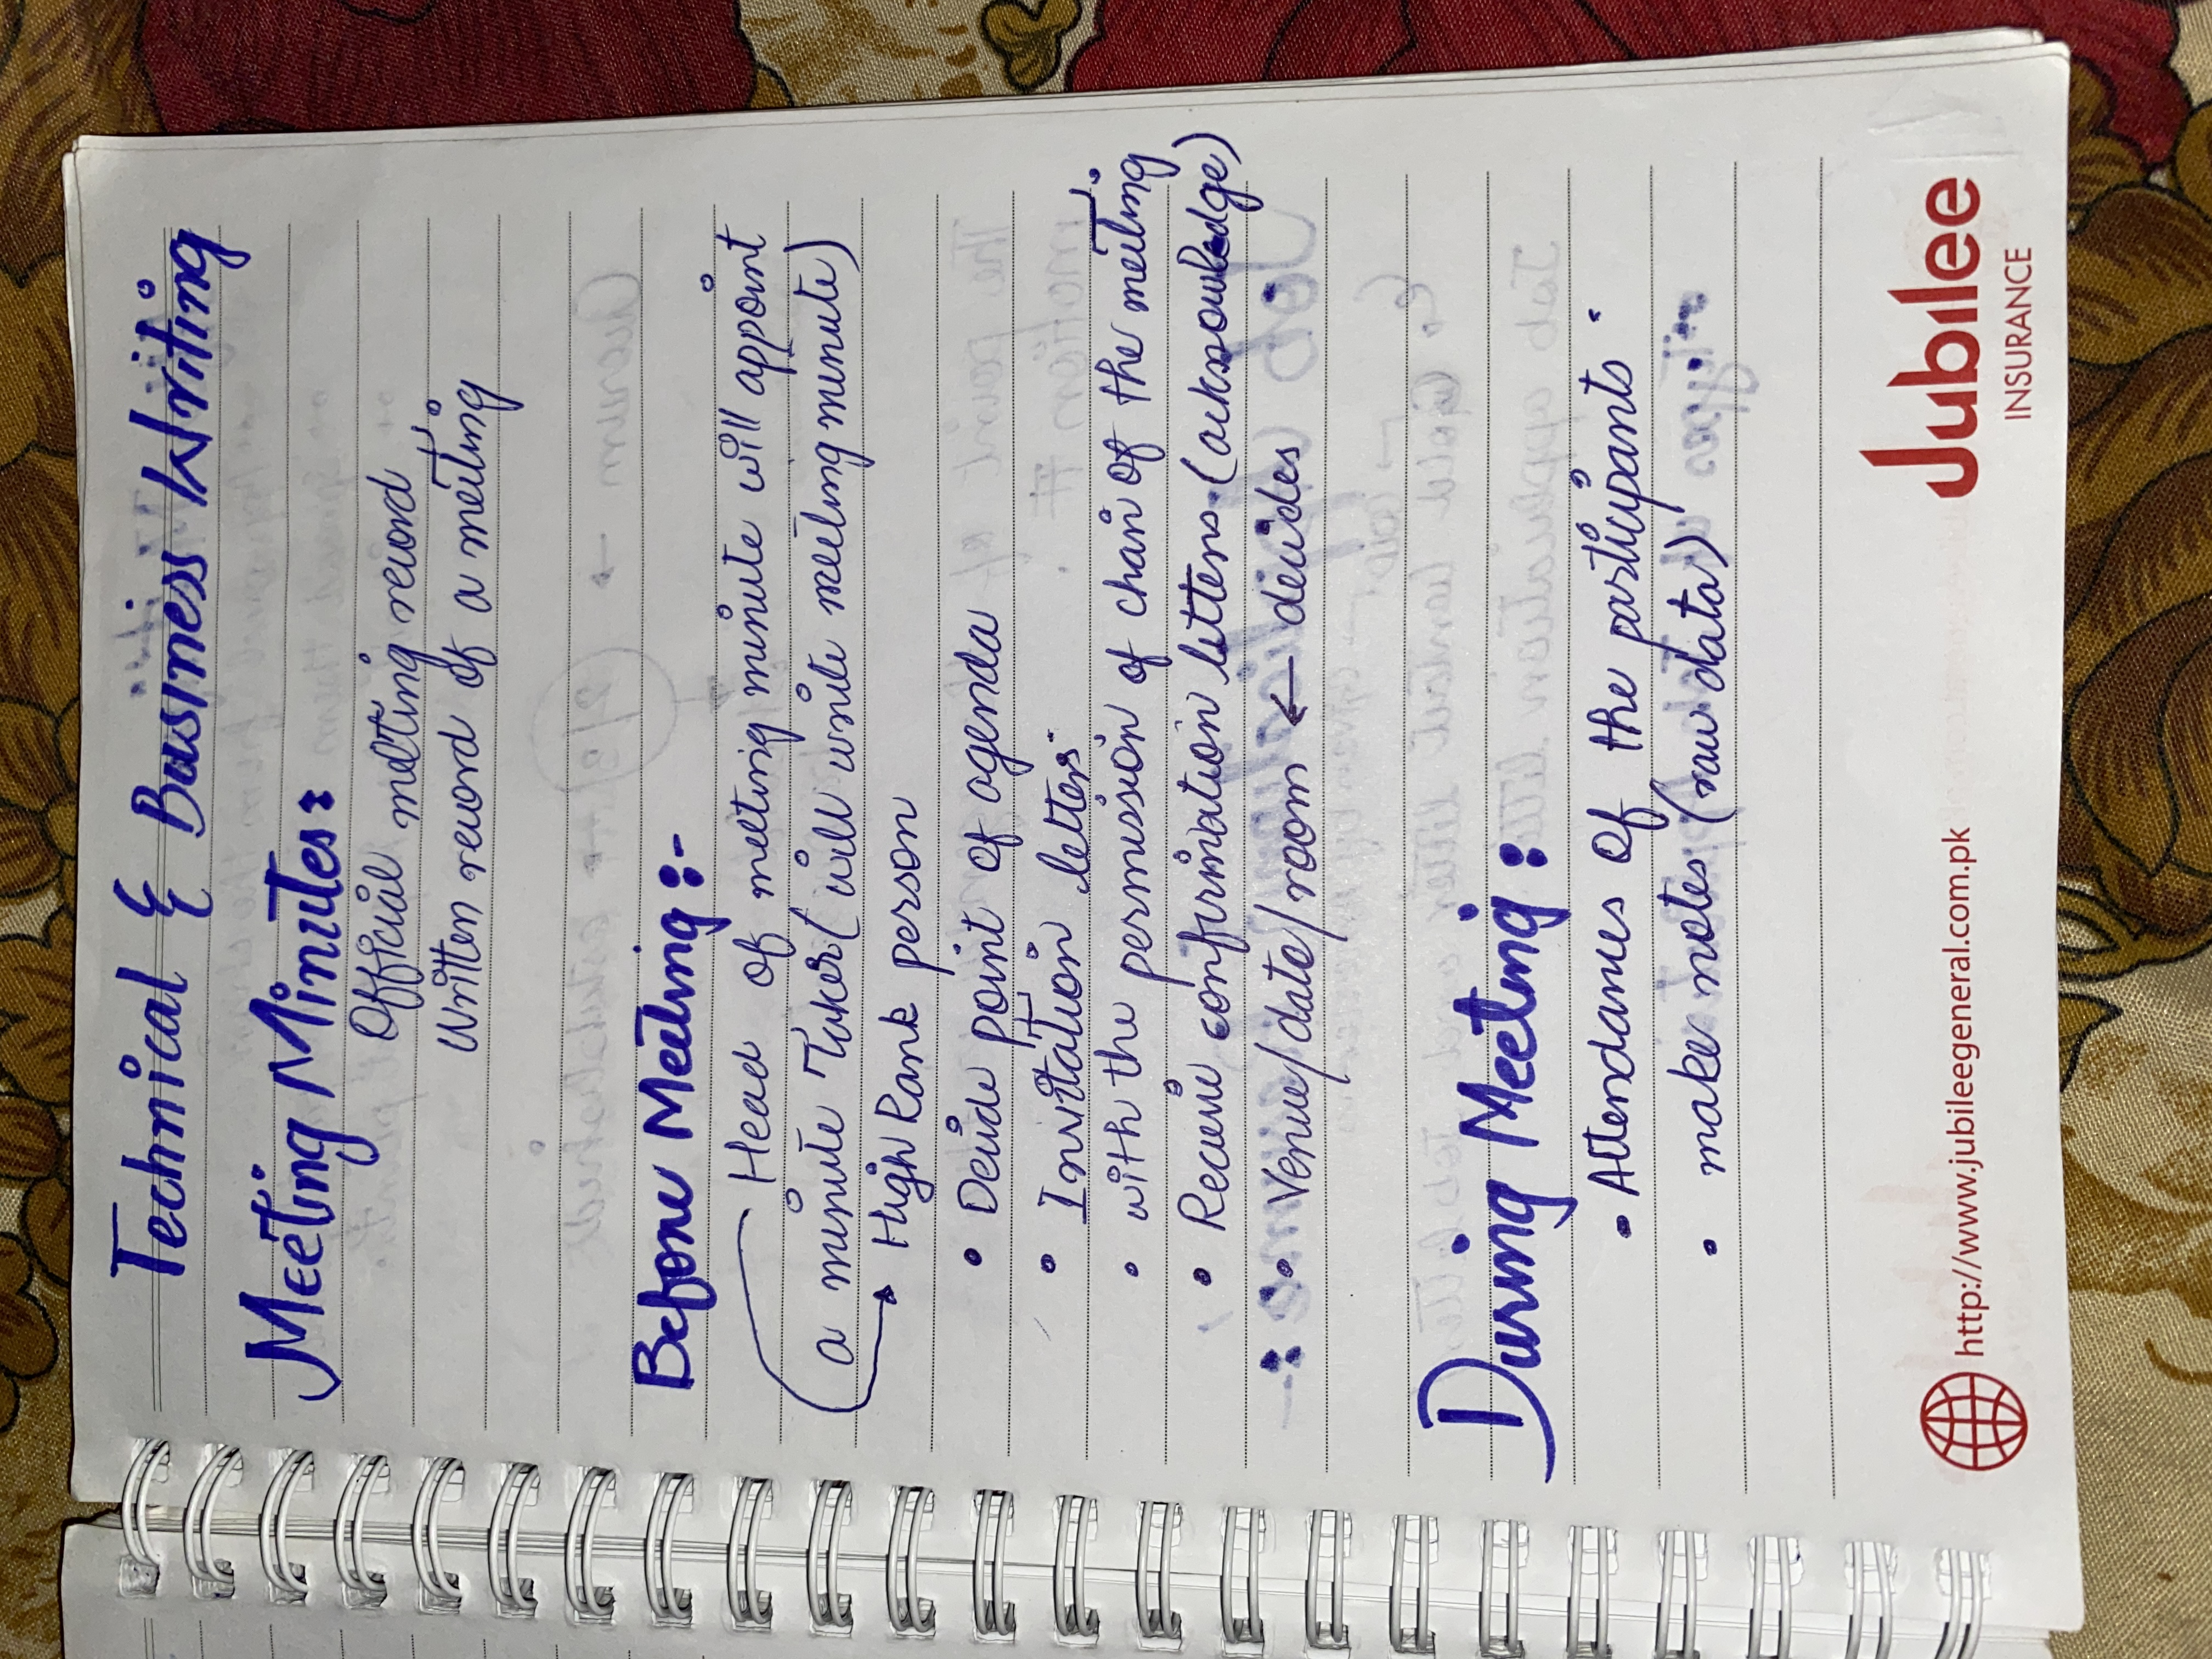 Technical & Business Writing
Meeting Minutes:
Official meeting record
Written record of a meeting
Before Meeting :-
Head of meeting minute will appoint
a minute Taker (will write meeting minute)
→ High Rank person
• Decide point of agenda
• Invitation letters
• with the permission of chair of the meeting
• Receive confirmation letters. (acknowledge)
• Venue/date/room ← decides
During Meeting :
• Attendances of the participants
• make notes (raw data)
http://www.jubileegeneral.com.pk
Jubilee
INSURANCE